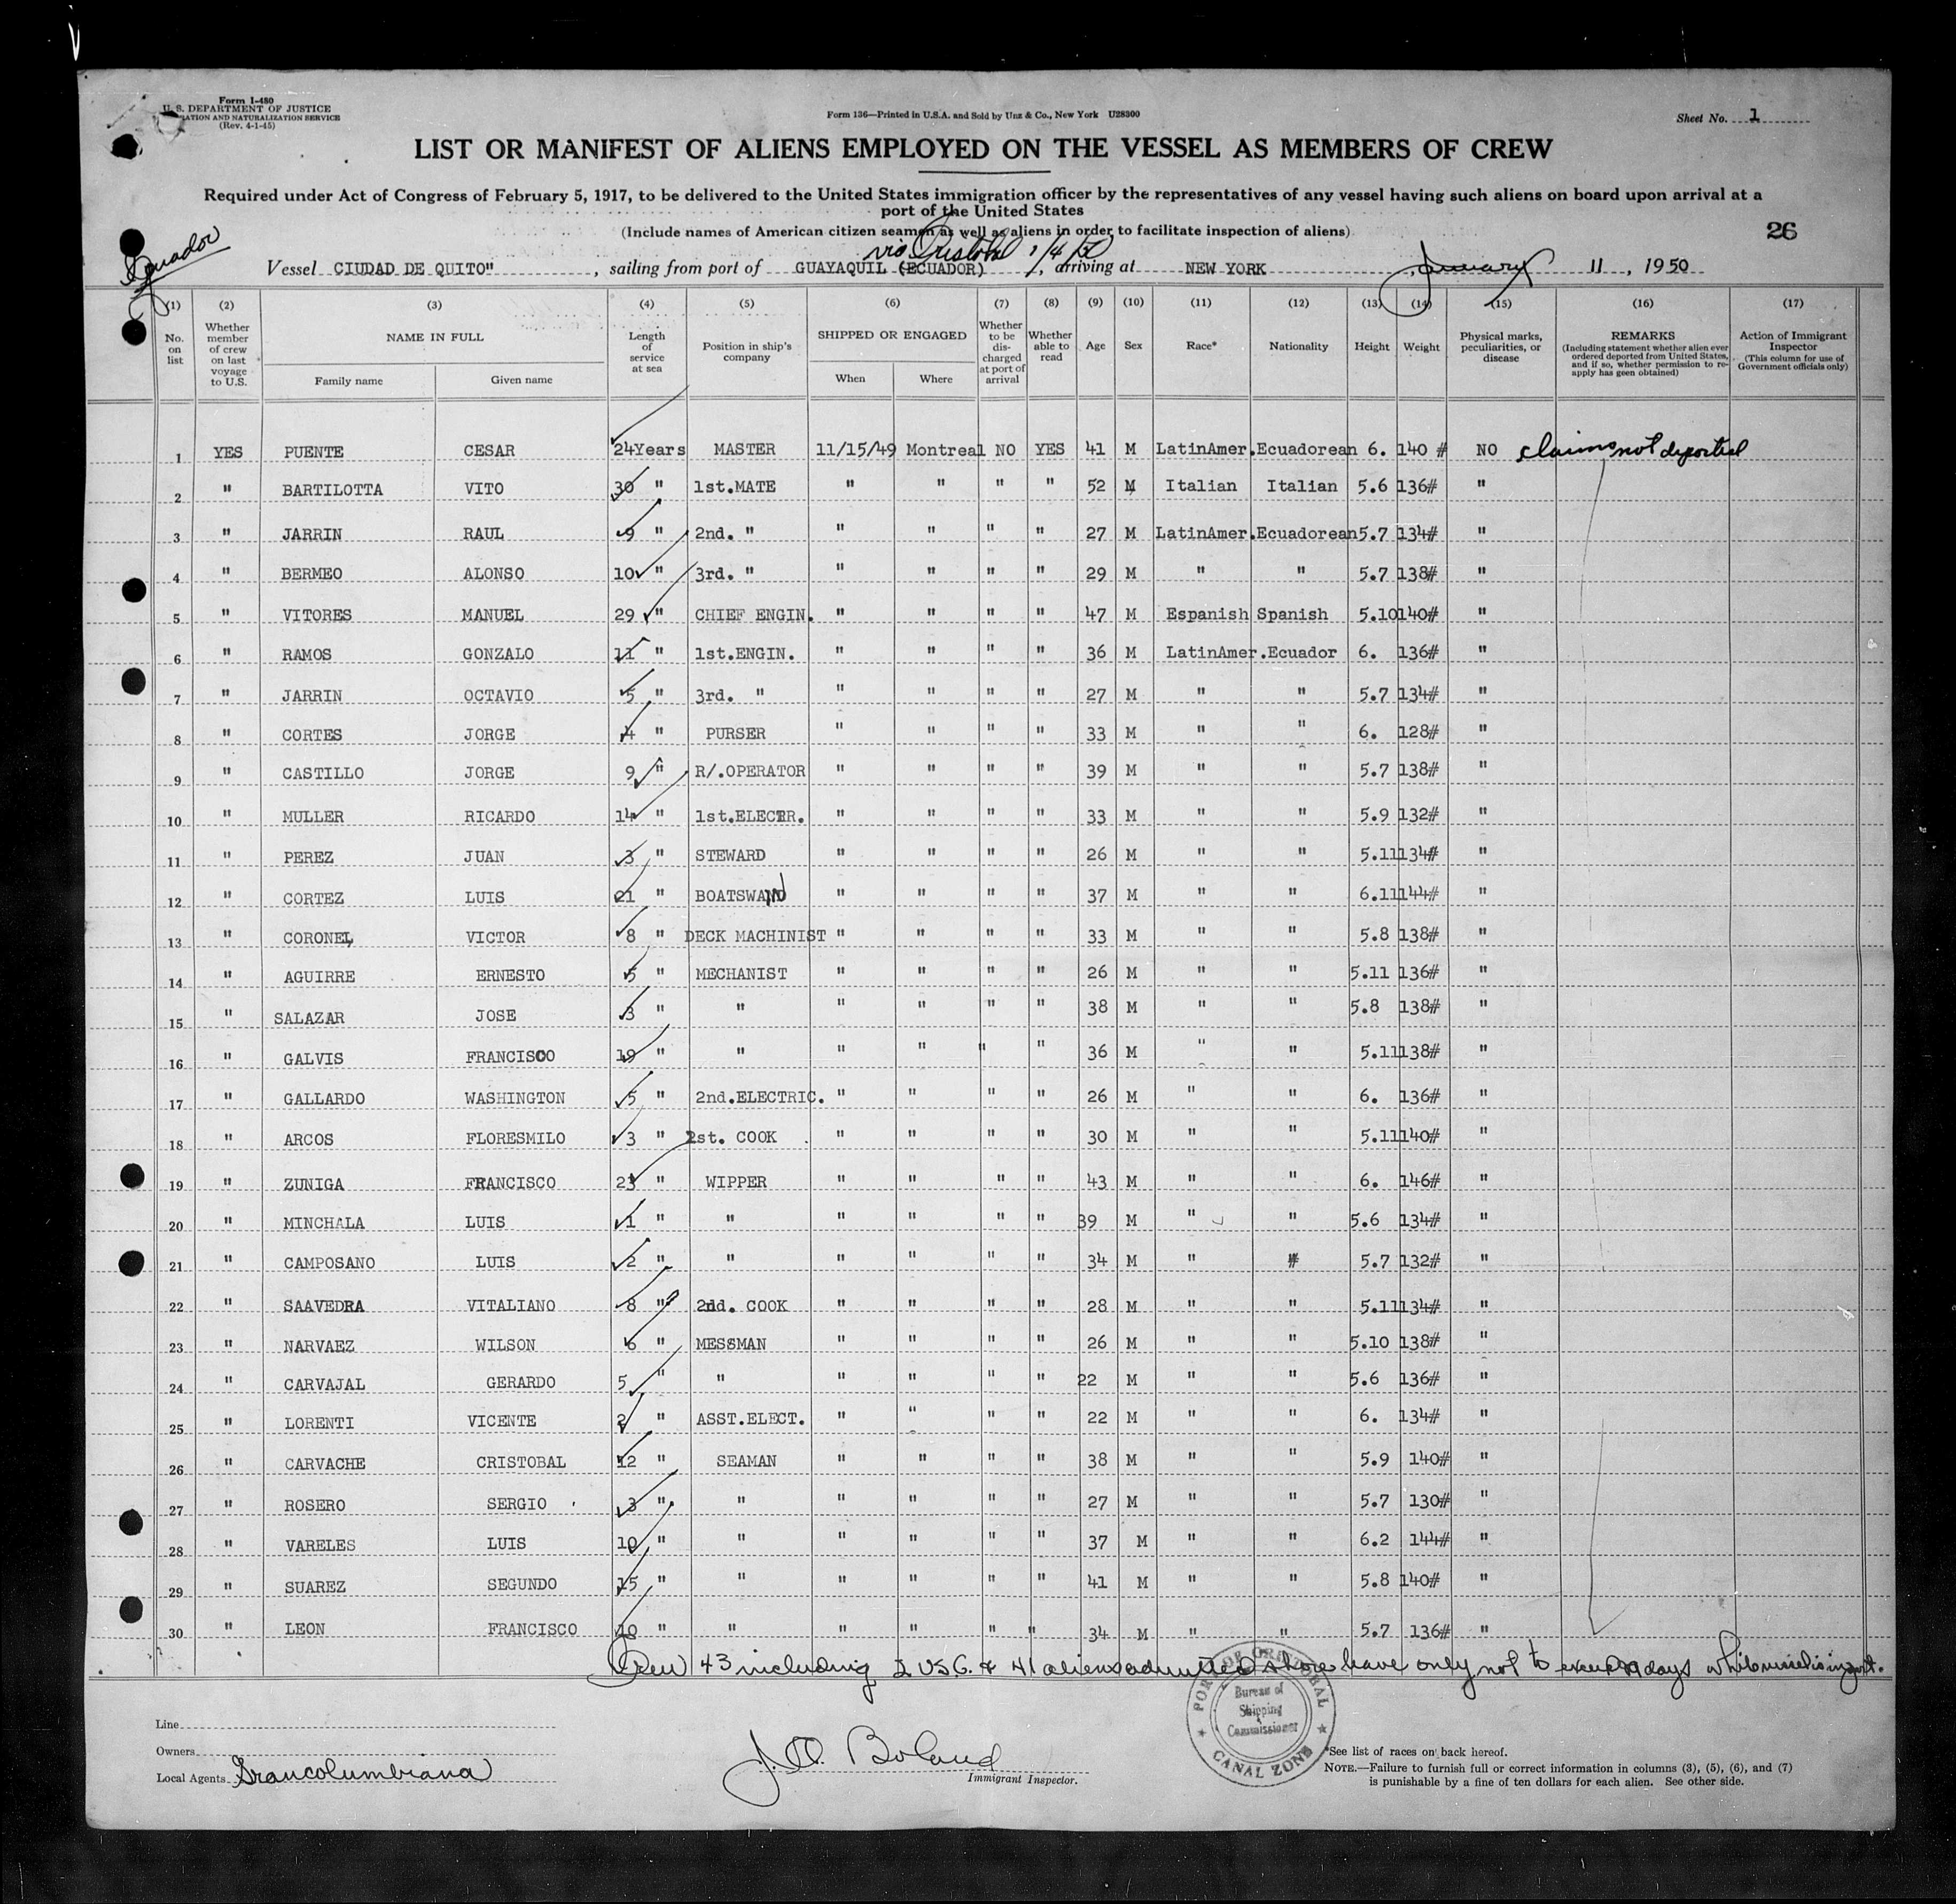 Form I-480
U. S. DEPARTMENT OF JUSTICE
ATION AND NATURALIZATION SERVICE
(Rev. 4-1-45)
Form 136—Printed in U.S.A. and Sold by Unz & Co., New York U28300
Sheet No. 1
LIST OR MANIFEST OF ALIENS EMPLOYED ON THE VESSEL AS MEMBERS OF CREW
Required under Act of Congress of February 5, 1917, to be delivered to the United States immigration officer by the representatives of any vessel having such aliens on board upon arrival at a
port of the United States
(Include names of American citizen seamen as well as aliens in order to facilitate inspection of aliens)
26
Ecuador
via Cristobal 1/4/50
Vessel CIUDAD DE QUITO" , sailing from port of GUAYAQUIL (ECUADOR) , arriving at NEW YORK , January 11 , 1950
(1) (2) (3) (4) (5) (6) (7) (8) (9) (10) (11) (12) (13) (14) (15) (16) (17)
No. on list Whether member of crew on last voyage to U.S. NAME IN FULL Family name Given name Length of service at sea Position in ship's company SHIPPED OR ENGAGED When Where Whether to be discharged at port of arrival Whether able to read Age Sex Race* Nationality Height Weight Physical marks, peculiarities, or disease REMARKS (Including statement whether alien ever ordered deported from United States, and if so, whether permission to re-apply has geen obtained) Action of Immigrant Inspector (This column for use of Government officials only)
1 YES PUENTE CESAR 24Years MASTER 11/15/49 Montreal NO YES 41 M LatinAmer.Ecuadorean 6. 140 # NO claims not deported
2 " BARTILOTTA VITO 30 " 1st.MATE " " " " 52 M Italian Italian 5.6 136# "
3 " JARRIN RAUL 9 " 2nd. " " " " " 27 M LatinAmer.Ecuadorean 5.7 134# "
4 " BERMEO ALONSO 10 " 3rd. " " " " " 29 M " " 5.7 138# "
5 " VITORES MANUEL 29 " CHIEF ENGIN. " " " " 47 M Espanish Spanish 5.10 140# "
6 " RAMOS GONZALO 11 " 1st.ENGIN. " " " " 36 M LatinAmer.Ecuador 6. 136# "
7 " JARRIN OCTAVIO 5 " 3rd. " " " " " 27 M " " 5.7 134# "
8 " CORTES JORGE 4 " PURSER " " " " 33 M " " 6. 128# "
9 " CASTILLO JORGE 9 " R/.OPERATOR " " " " 39 M " " 5.7 138# "
10 " MULLER RICARDO 14 " 1st.ELECTR. " " " " 33 M " " 5.9 132# "
11 " PEREZ JUAN 3 " STEWARD " " " " 26 M " " 5.11 134# "
12 " CORTEZ LUIS 21 " BOATSWAND " " " " 37 M " " 6.11 144# "
13 " CORONEL VICTOR 8 " DECK MACHINIST " " " " 33 M " " 5.8 138# "
14 " AGUIRRE ERNESTO 5 " MECHANIST " " " " 26 M " " 5.11 136# "
15 " SALAZAR JOSE 3 " " " " " " 38 M " " 5.8 138# "
16 " GALVIS FRANCISCO 19 " " " " " " 36 M " " 5.11 138# "
17 " GALLARDO WASHINGTON 5 " 2nd.ELECTRIC. " " " " 26 M " " 6. 136# "
18 " ARCOS FLORESMILO 3 " 1st. COOK " " " " 30 M " " 5.11 140# "
19 " ZUNIGA FRANCISCO 23 " WIPPER " " " " 43 M " " 6. 146# "
20 " MINCHALA LUIS 1 " " " " " " 39 M " " 5.6 134# "
21 " CAMPOSANO LUIS 2 " " " " " " 34 M " # 5.7 132# "
22 " SAAVEDRA VITALIANO 8 " 2nd. COOK " " " " 28 M " " 5.11 134# "
23 " NARVAEZ WILSON 6 " MESSMAN " " " " 26 M " " 5.10 138# "
24 " CARVAJAL GERARDO 5 " " " " " " 22 M " " 5.6 136# "
25 " LORENTI VICENTE 2 " ASST.ELECT. " " " " 22 M " " 6. 134# "
26 " CARVACHE CRISTOBAL 12 " SEAMAN " " " " 38 M " " 5.9 140# "
27 " ROSERO SERGIO 3 " " " " " " 27 M " " 5.7 130# "
28 " VARELES LUIS 10 " " " " " " 37 M " " 6.2 144# "
29 " SUAREZ SEGUNDO 15 " " " " " " 41 M " " 5.8 140# "
30 " LEON FRANCISCO 10 " " " " " " 34 M " " 5.7 136# "
Crew 43 including 2 USC. & 41 aliens admitted shore leave only not to exceed 29 days while vessel is in port.
PORT OF CRISTOBAL
Bureau of
Shipping
Commissioner
CANAL ZONE
Line
Owners
Local Agents Grancolumbiana
J. O. Boland
Immigrant Inspector.
*See list of races on back hereof.
NOTE.—Failure to furnish full or correct information in columns (3), (5), (6), and (7)
is punishable by a fine of ten dollars for each alien. See other side.